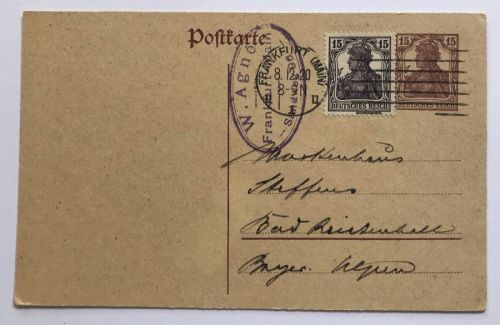 Postkarte
W. Agno
Frankfurt
FRANKFURT (MAIN)
8.12.20
8-9N
15 15
DEUTSCHES REICH
15 15
DEUTSCHES REICH
Markenhaus
Steffens
Bad Reichenhall
Bayer. Alpen